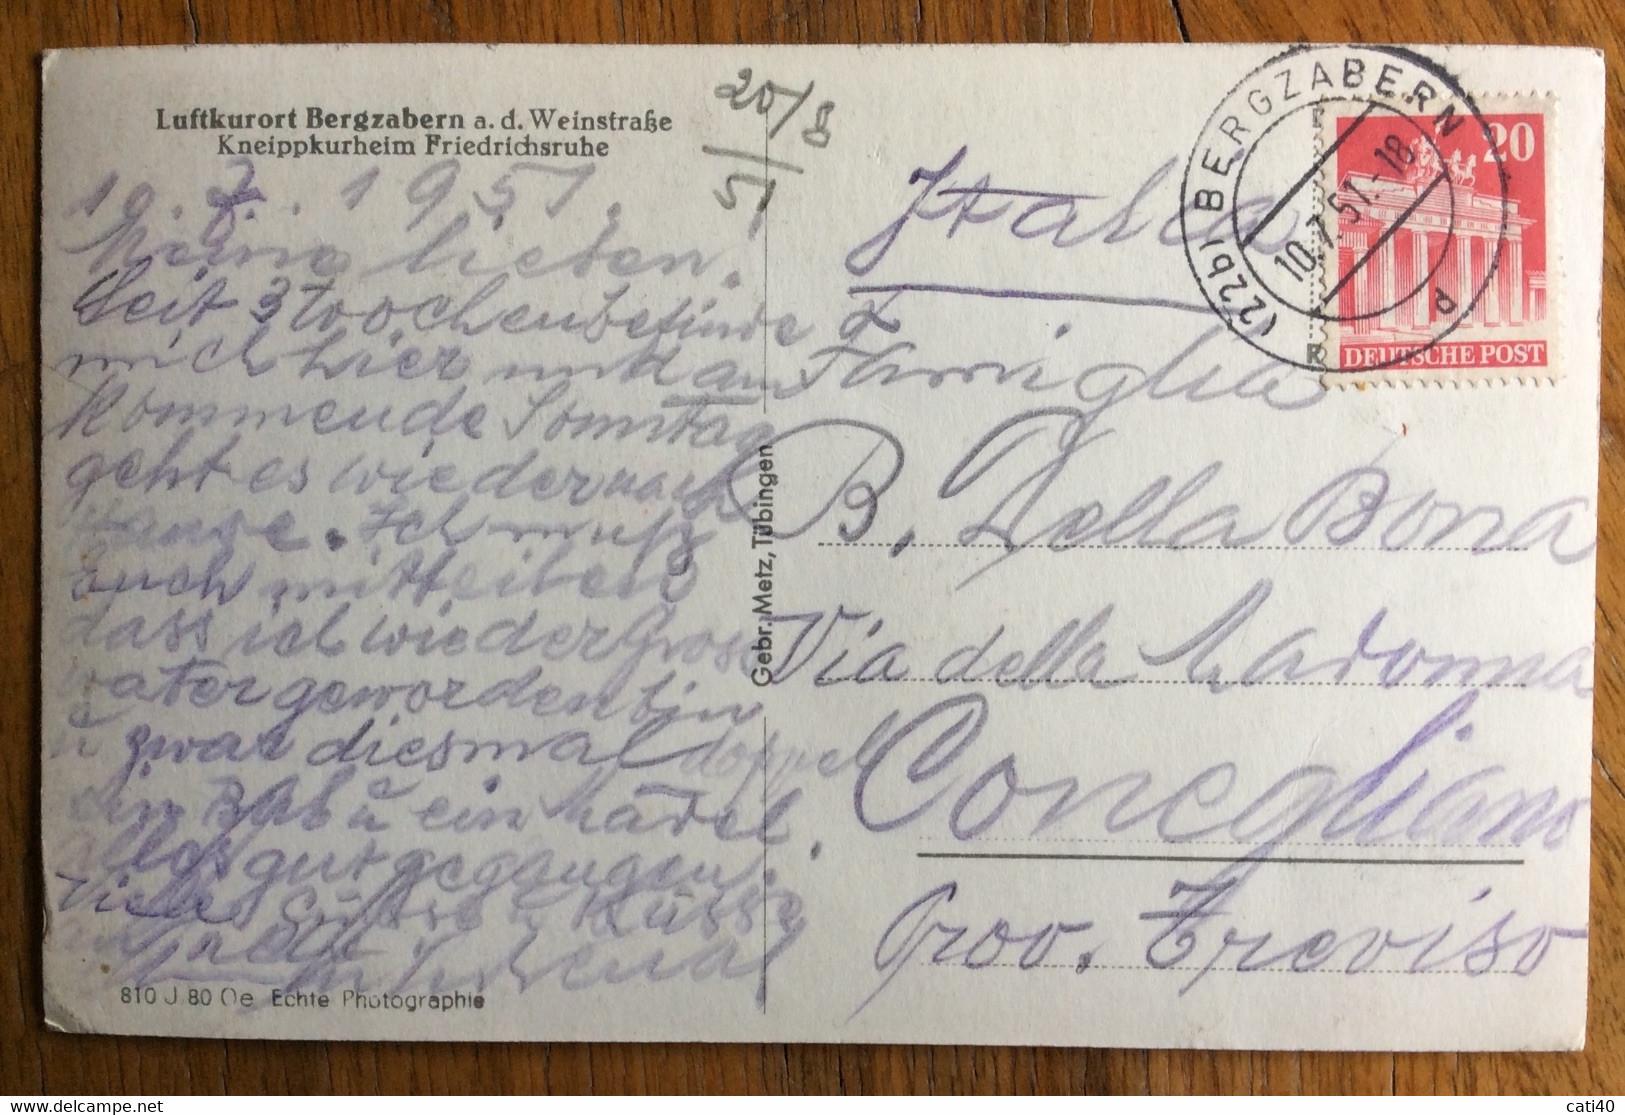 Luftkurort Bergzabern a. d. Weinstraße
Kneippkurheim Friedrichsruhe
20/8
51
10. 7. 1951.
Meine lieben.
Seit 3 Wochen befinde
mich hier und am
Kommende Sonntag
geht es wieder nach
Hause. Ich muß
Euch mitteilen
dass ich wieder Gross
vater geworden bin
u zwar diesmal doppel
ein Bub u ein Mädel.
alles gut gegangen.
Viele Grüsse u Küsse
810 J 80 Oe Echte Photographie
Gebr. Metz, Tübingen
Italia
Famiglia
B. Della Bona
Via della Madonna
Conegliano
Prov. Treviso
(22b) BERGZABERN
10.7.51.-18
d
20
DEUTSCHE POST
cati40